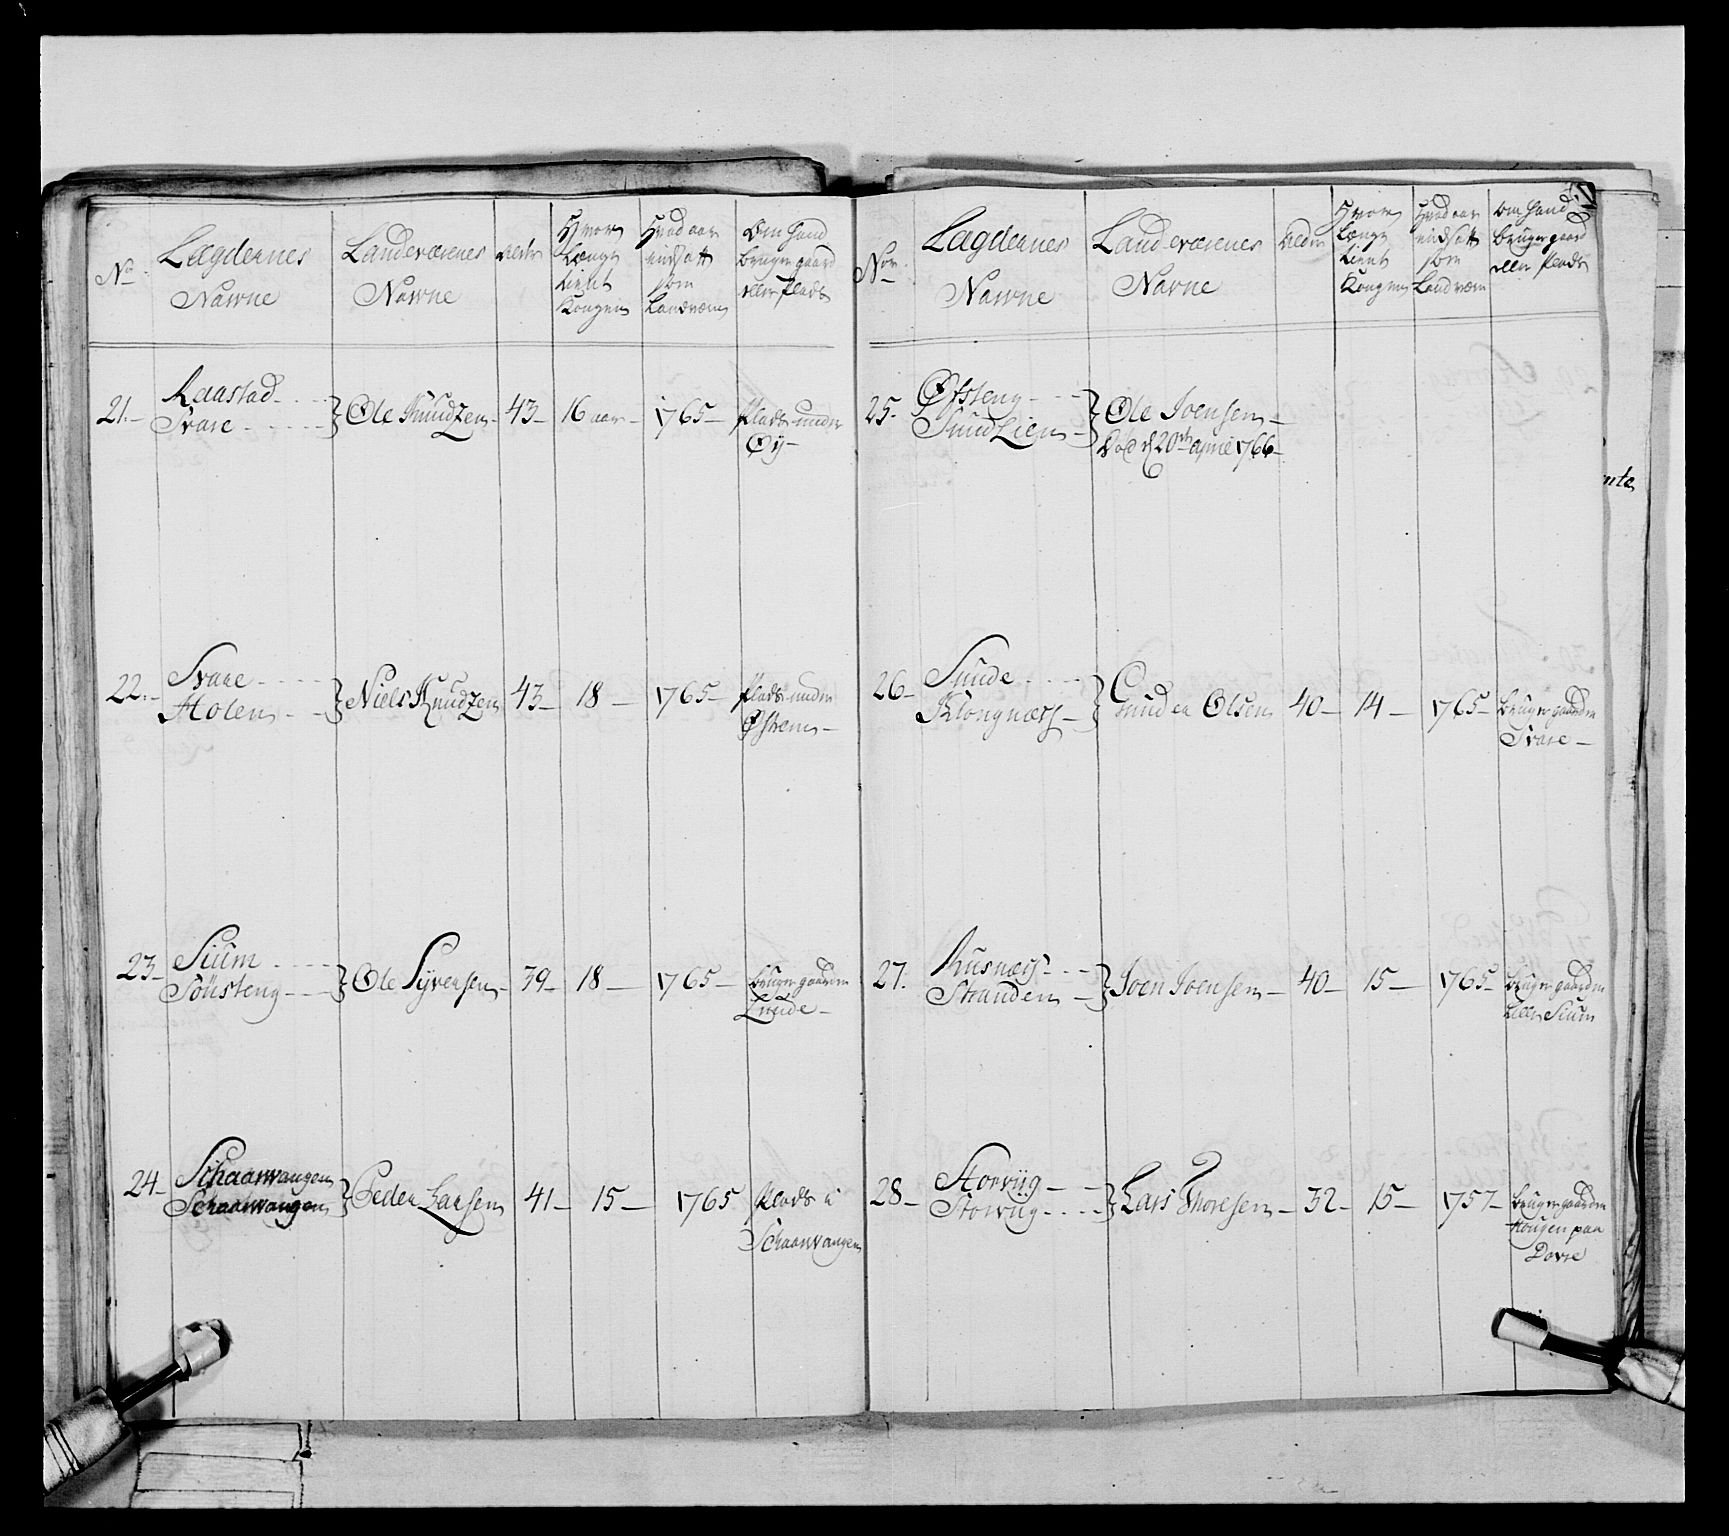 No
Lægdernes
Nawne
Landeværenes
Nawne
Alder
Hvor
Længe
tient
Kongen
Hvad aar
indsatt
som
Landværn
Om hand
bruger gaard
eller Plads
21.-
Raastad - - -
Svare - - - -
Ole Knudzen - 43 - 16 aar - 1765 -
Plads under
Øy -
22.-
Svare - - - -
Holen - -
Niels Knudzen 43 - 18 - 1765 -
Plads under
Østrem -
23 -
Sium - - - -
Sønsteng - - -
Ole Syversen - 39 - 18 - 1765 -
bruger gaarden
Lunde -
24 -
Schaarvangen
Schaarvangen
Peder Larsen 41 - 15 - 1765
Plads u
Schaarvangen
Nor
Lægdernes
Nawne
Landeværenes
Navne
Alder
Hvor
Længe
tient
Kongen
Hvad aar
indsatt
som
Landværn
Om hand
bruger gaard
eller Plads
25.
Øfsteng - - -
Sundlien -
Ole Joensen -
Død d 20de april 1766 -
26 -
Sunde - - - -
Klongnæss -
Gunder Olsen 40 - 14 - 1765 -
bruger gaarden
Svare -
27.
Rusnæss - - -
Stranden -
Joen Joensen - 40 - 15 - 1765 -
bruger gaarden
Sium
28 -
Storviig - -
Storviig - - - -
Lars Thoresen - 32 - 15 - 1757 -
bruger gaarden
Hougen paa
Dovre